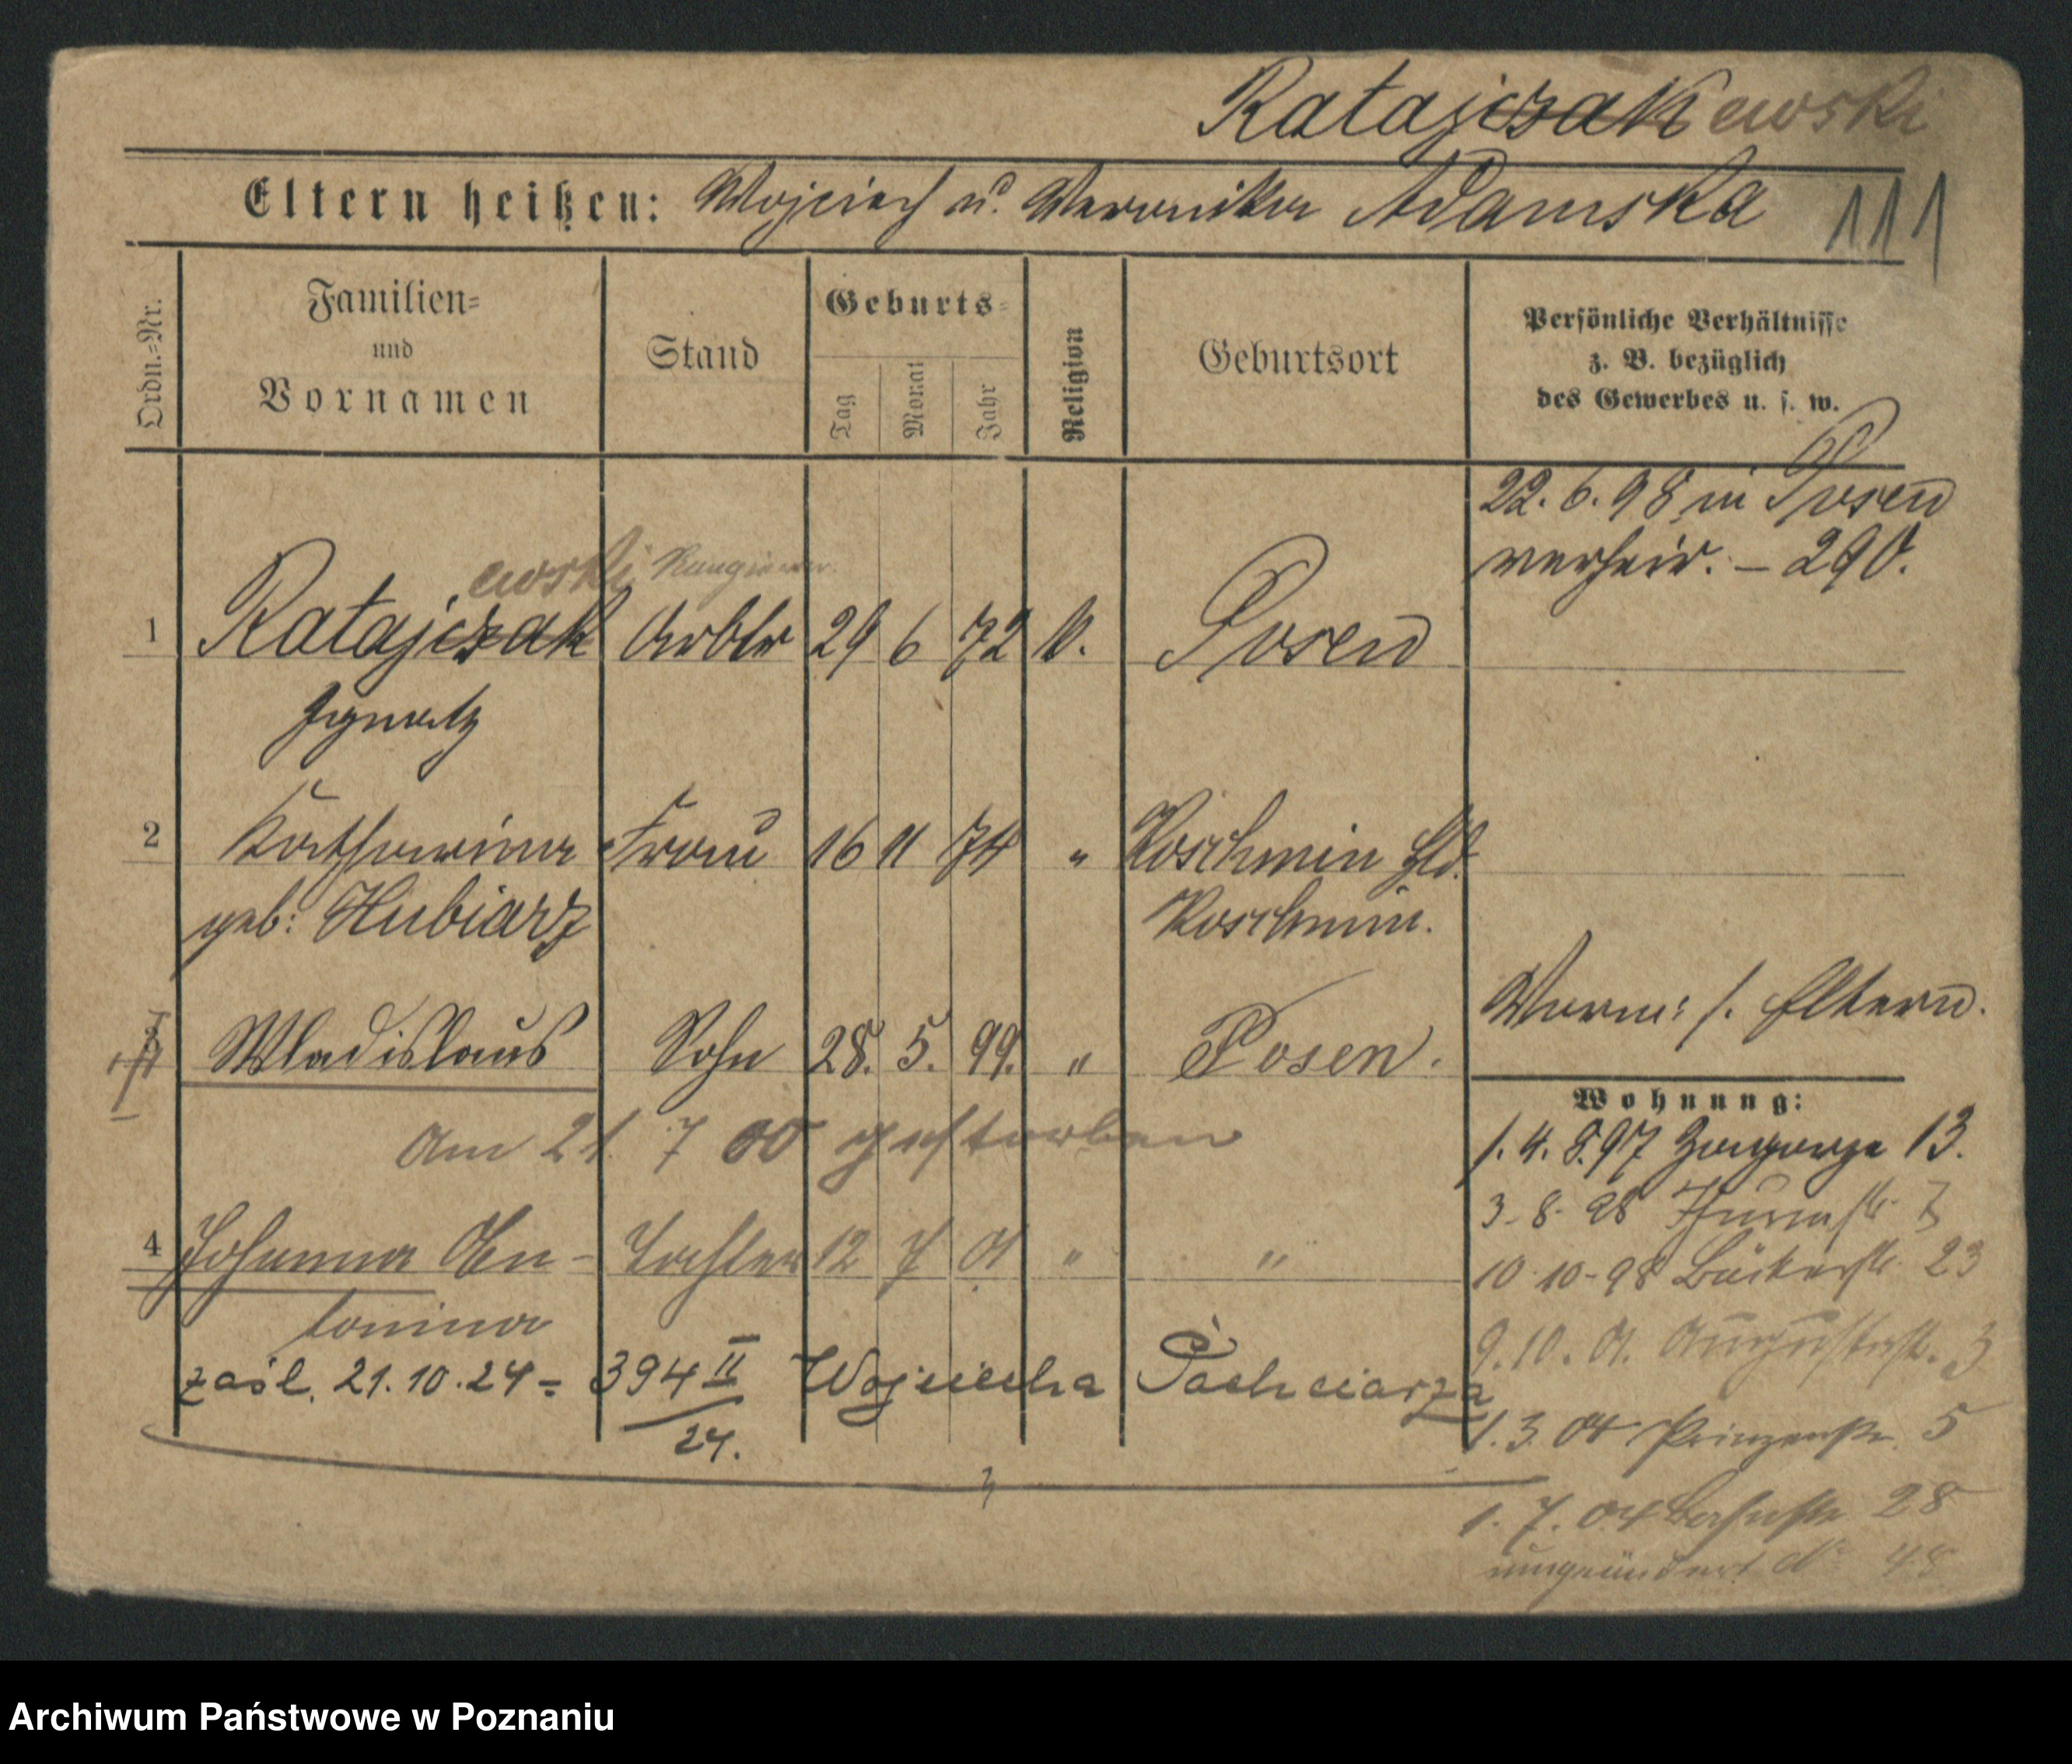 Ratajczak ewski
Eltern heißen: Wojciech u. Veronika Adamska
111
Ordn.=Nr.
Familien=
und
Vornamen
Stand
Geburts=
Tag
Monat
Jahr
Religion
Geburtsort
Persönliche Verhältnisse
z. B. bezüglich
des Gewerbes u. s. w.
22. 6. 98 in Posen
verheir. – 290.
ewski Rangierer
1 Ratajczak Arbtr 29 6 72 k. Posen
Ignatz
2 Katharina Frau 16 11 74 " Koschmin Hld.
geb: Hubiarz Koschmin.
Vorw: s. Eltern.
3 Wladislaus Sohn 28. 5. 99. " Posen.
Am 21. 7 00 gestorben
4 Johanna An- Tochter 12 7 01 " "
tonina
zaśl. 21.10.24 = 394 II Wojciecha Pachciarza
24.
Wohnung:
1. 4. 8.97 Zagorze 13.
3. 8. 98 Thurmstr. 7
10 10-98 Bäckerstr. 23
9.10.01. Augustastr. 3
1.3.04 Prinzenstr. 5
1. 7. 04 Bahnstr 28
umgeändert No 48
Archiwum Państwowe w Poznaniu